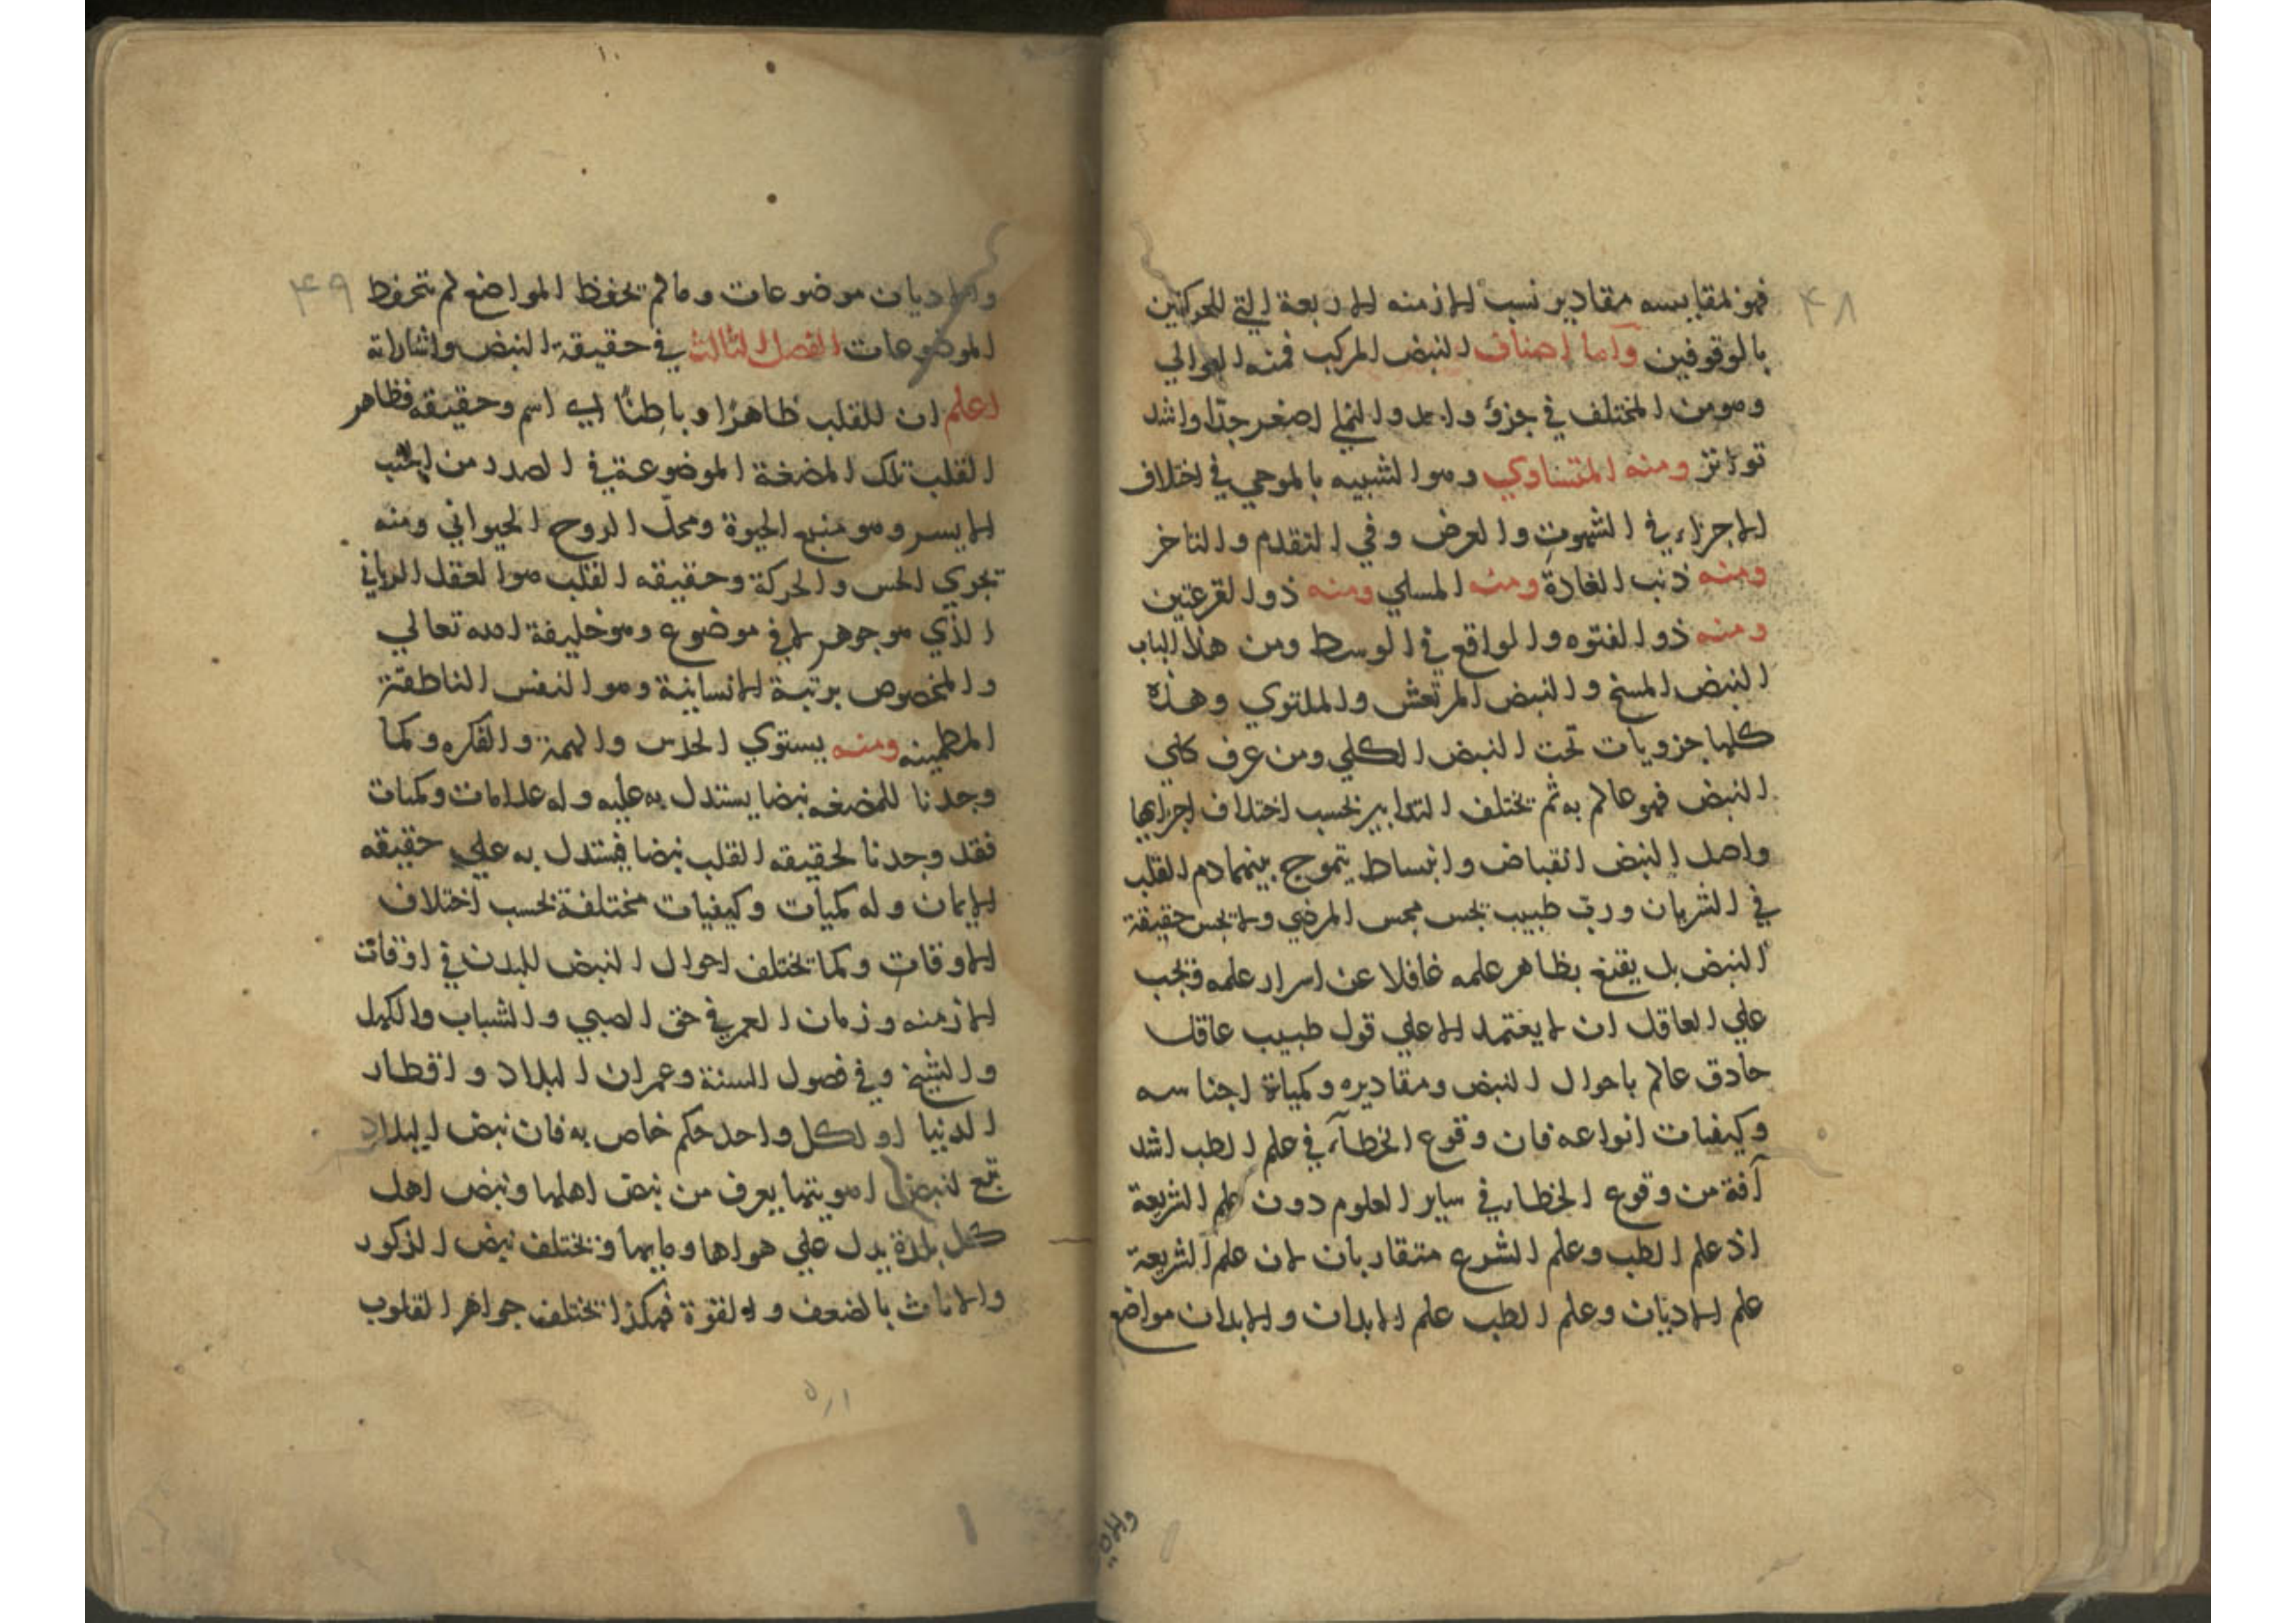 ٤٨
فهو مقايسه مقادير نسب الازمنه الاربعة التي للحركتين
بالوقوفين وآما اصناف النبض المركب فمنه الغزالي
وهو من المختلف في جزؤ واحد والنملي اصغر جدّا واشد
تواتر ومنه المتساوي وهو الشبيه بالموجي في اختلاف
الاجزاء في الشهوق والعرض وفي التقدم والتاخر
ومنه ذنب الفارة ومنه المسلي ومنه ذو القرعتين
ومنه ذو الفتوه والواقع في الوسط ومن هذا الباب
النبض المسنح والنبض المرتعش والملتوي وهذه
كلها جزويات تحت النبض الكلي ومن عرف كلي
النبض فهو عالم به ثم تختلف التدابير بحسب اختلاف اجزايها
واصل النبض انقباض وانبساط يتموج بينهما دم القلب
في الشريان ورب طبيب يجس مجس المرضي ولا يجس حقيقة
النبض بل يقنع بظاهر علمه غافلا عن اسرار علمه فيجب
علي العاقل ان لا يعتمد الا علي قول طبيب عاقل
حاذق عالم باحوال النبض ومقاديره وكمياة اجناسه
وكيفيات انواعه فان وقوع الخطآء في علم الطب اشد
آفة من وقوع الخطاء في ساير العلوم دون علم الشريعة
اذ علم الطب وعلم الشرع متقاربان لان علم الشريعة
علم الاديان وعلم الطب علم الابدان والابدان مواضع
٤٩
والاديان موضوعات وما لم تحفظ المواضع لم تحفظ
الموضوعات الفصل الثالث في حقيقة النبض واشاراته
اعلم ان للقلب ظاهرًا وباطنًا اي اسم وحقيقه فظاهر
القلب تلك المضغة الموضوعة في الصدر من الجنب
الايسر وهو منبع الحيوة ومحلّ الروح الحيواني ومنه
تجري الحس والحركة وحقيقه القلب هو العقل الرباني
الذي هو جوهر لا في موضوع وهو خليفة الله تعالي
والمخصوص برتبة الانسانية وهو النفس الناطقة
المطمينه ومنه يستوي الحدس والهمة والفكره وكما
وجدنا للمضغه نبضا يستدل به عليه وله علامات وكميات
فقد وجدنا لحقيقه القلب نبضا فيستدل به علي حقيقه
الايمان وله كميات وكيفيات مختلفة بحسب اختلاف
الاوقات وكما تختلف احوال النبض للبدن في اوقات
الازمنه وزمان العمر في حق الصبي والشباب والكهل
والشيخ وفي فصول السنة وعمران البلاد واقطار
الدنيا او لكل واحد حكم خاص به فان نبض البلاد
تبع لنبض اهويتها يعرف من نبض اهلها ونبض اهل
كل بلدة يدل علي هواها ومايها وتختلف نبض الذكور
والاناث بالضعف والقوة فهكذا تختلف جواهر القلوب